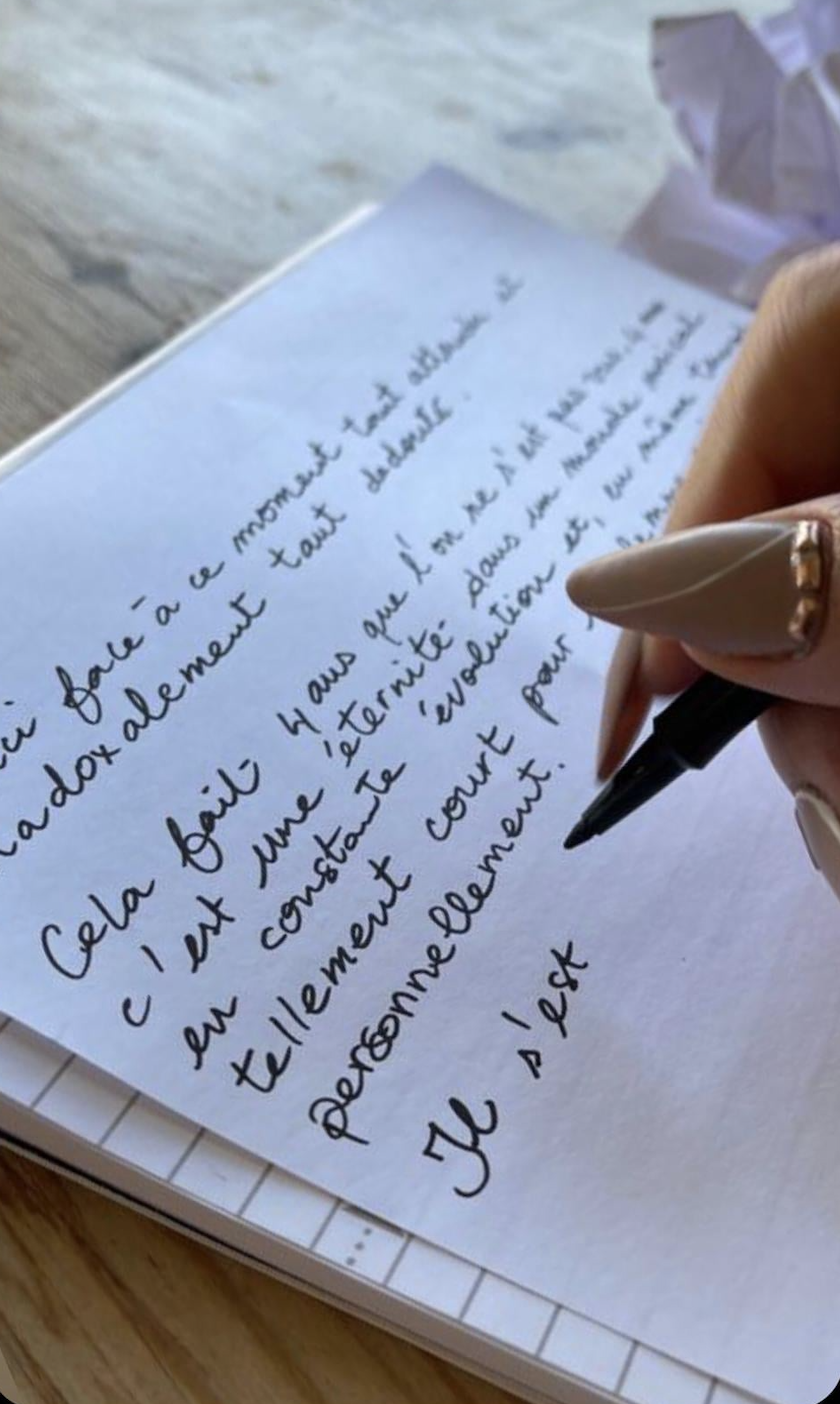 ci face à ce moment tant attendu et
adoxalement tant redouté.
Cela fait 4 ans que l'on ne s'est pas vus. 4 ans
c'est une éternité dans un monde musical
en constante évolution et, en même temps
tellement court pour
personnellement.
Il s'est